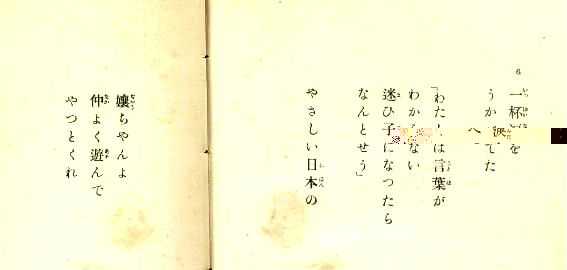 一杯涙を
うかべてた
「わたしは言葉が
わからない
迷ひ子になつたら
なんとせう」
やさしい日本の
嬢ちやんよ
仲よく遊んで
やつとくれ